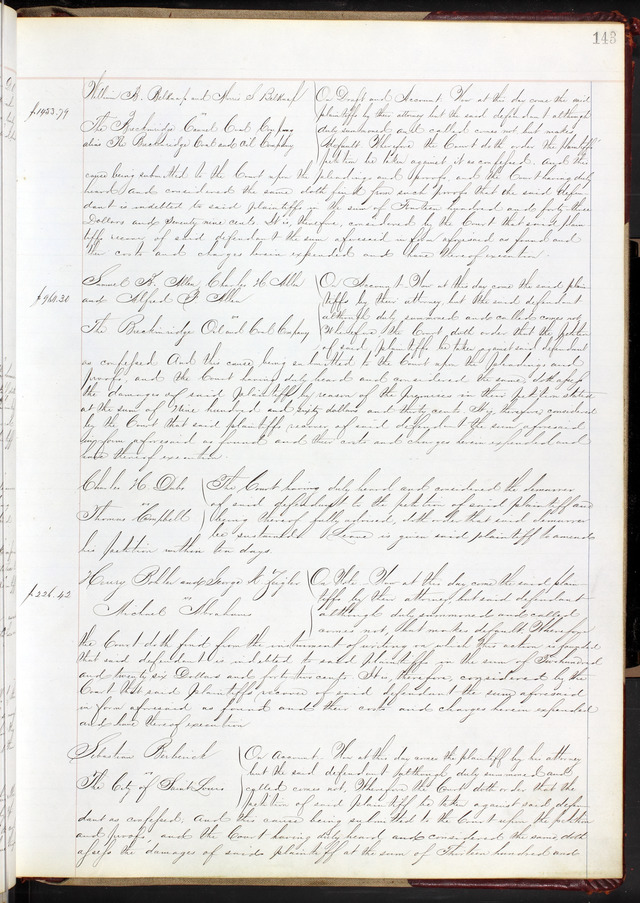 143
William B. Belknap and Morris S. Belknap
vs
The Breckinridge Cannel Coal Company
alias The Breckinridge Coal and Oil Company
$1453.79
On Draft and Account. Now at this day come the said
plaintiffs by their attorney but the said defendant although
duly summoned and called comes not but makes
default. Wherefore the Court doth order the plaintiffs
petition be taken against it as confessed. And the
cause being submitted to the Court upon the pleadings and proofs, and the Court having duly
heard and considered the same doth find from such proof that the said defen-
dant is indebted to said plaintiffs in the sum of Fourteen hundred and fifty three
Dollars and seventy nine cents. It is, therefore, considered by the Court that said plain-
tiffs recover of said defendant the sum aforesaid in form aforesaid as found and
their costs and charges herein expended and have thereof execution.
Samuel F. Allen, Charles H. Allen
and Alfred F. Allen
vs
The Breckinridge Oil and Coal Company
$960.30
On Account. Now at this day come the said plain-
tiffs by their attorney, but the said defendant
although duly summoned and called comes not,
Wherefore the Court doth order that the petition
of said plaintiffs be taken against said defendant
as confessed. And this cause being submitted to the Court upon the pleadings and
proofs, and the Court having duly heard and considered the same, doth assess
the damages of said plaintiffs by reason of the premises in the petition stated
at the sum of Nine hundred and sixty dollars and thirty cents. It is, therefore, considered
by the Court that said plaintiffs recover of said defendant the sum aforesaid
in form aforesaid as found and their costs and charges herein expended and
have thereof execution.
Charles H.
vs
Thomas Campbell
The Court having duly heard and considered the demurrer
of said defendant to the petition of said plaintiff and
being thereof fully advised, doth order that said demurrer
be sustained. Leave is given said plaintiff to amend
his petition within ten days.
Henry and George A.
vs
Michael Abrahams
$226.42
On Note. Now at this day come the said plain-
tiffs by their attorney, but said defendant
although duly summoned and called
comes not, but makes default. Wherefore
the Court doth find from the instrument of writing on which this action is founded
that said defendant is indebted to said plaintiffs in the sum of Two hundred
and twenty six Dollars and forty two cents. It is, therefore, considered by the
Court that said plaintiffs recover of said defendant the sum aforesaid
in form aforesaid as found and their costs and charges herein expended
and have thereof execution.
Sebastian
vs
The City of Saint Louis
On Account. Now at this day comes the plaintiff by his attorney
but the said defendant although duly summoned and
called comes not, Wherefore the Court doth order that the
petition of said plaintiff be taken against said defen-
dant as confessed. And this cause being submitted to the Court upon the petition
and proofs, and the Court having duly heard and considered the same, doth
assess the damages of said plaintiff at the sum of Thirteen hundred and